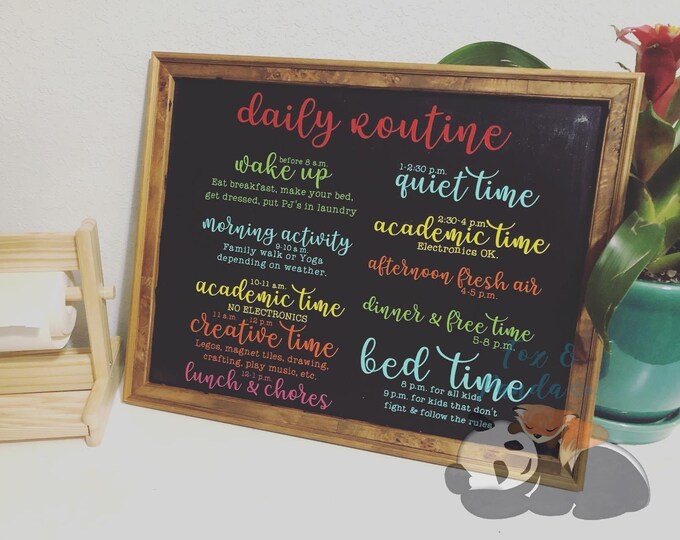 daily routine
wake up
before 8 a.m.
Eat breakfast, make your bed,
get dressed, put PJ's in laundry
morning activity
9-10 a.m.
Family walk or Yoga
depending on weather.
10-11 a.m.
academic time
NO ELECTRONICS
11 a.m. 12 p.m
creative time
Legos, magnet tiles, drawing,
crafting, play music, etc.
12-1 p.m.
lunch & chores
1-2:30 p.m.
quiet time
2:30-4 p.m
academic time
Electronics OK.
afternoon fresh air
4-5 p.m.
dinner & free time
5-8 p.m.
bed time
8 p.m. for all kids
9 p.m. for kids that don't
fight & follow the rules
Fox &
Panda